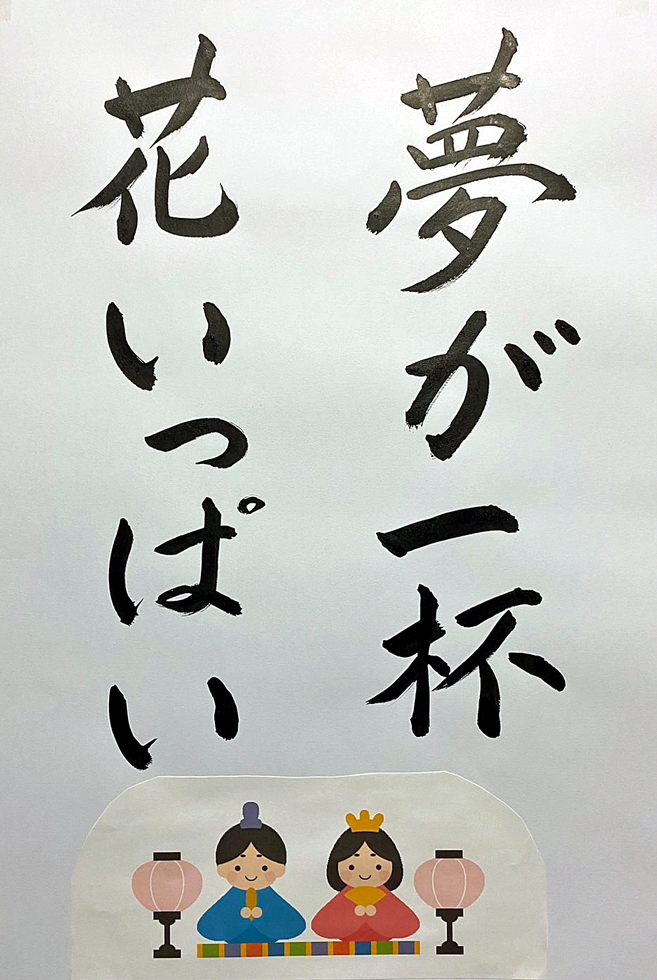 夢が一杯
花いっぱい